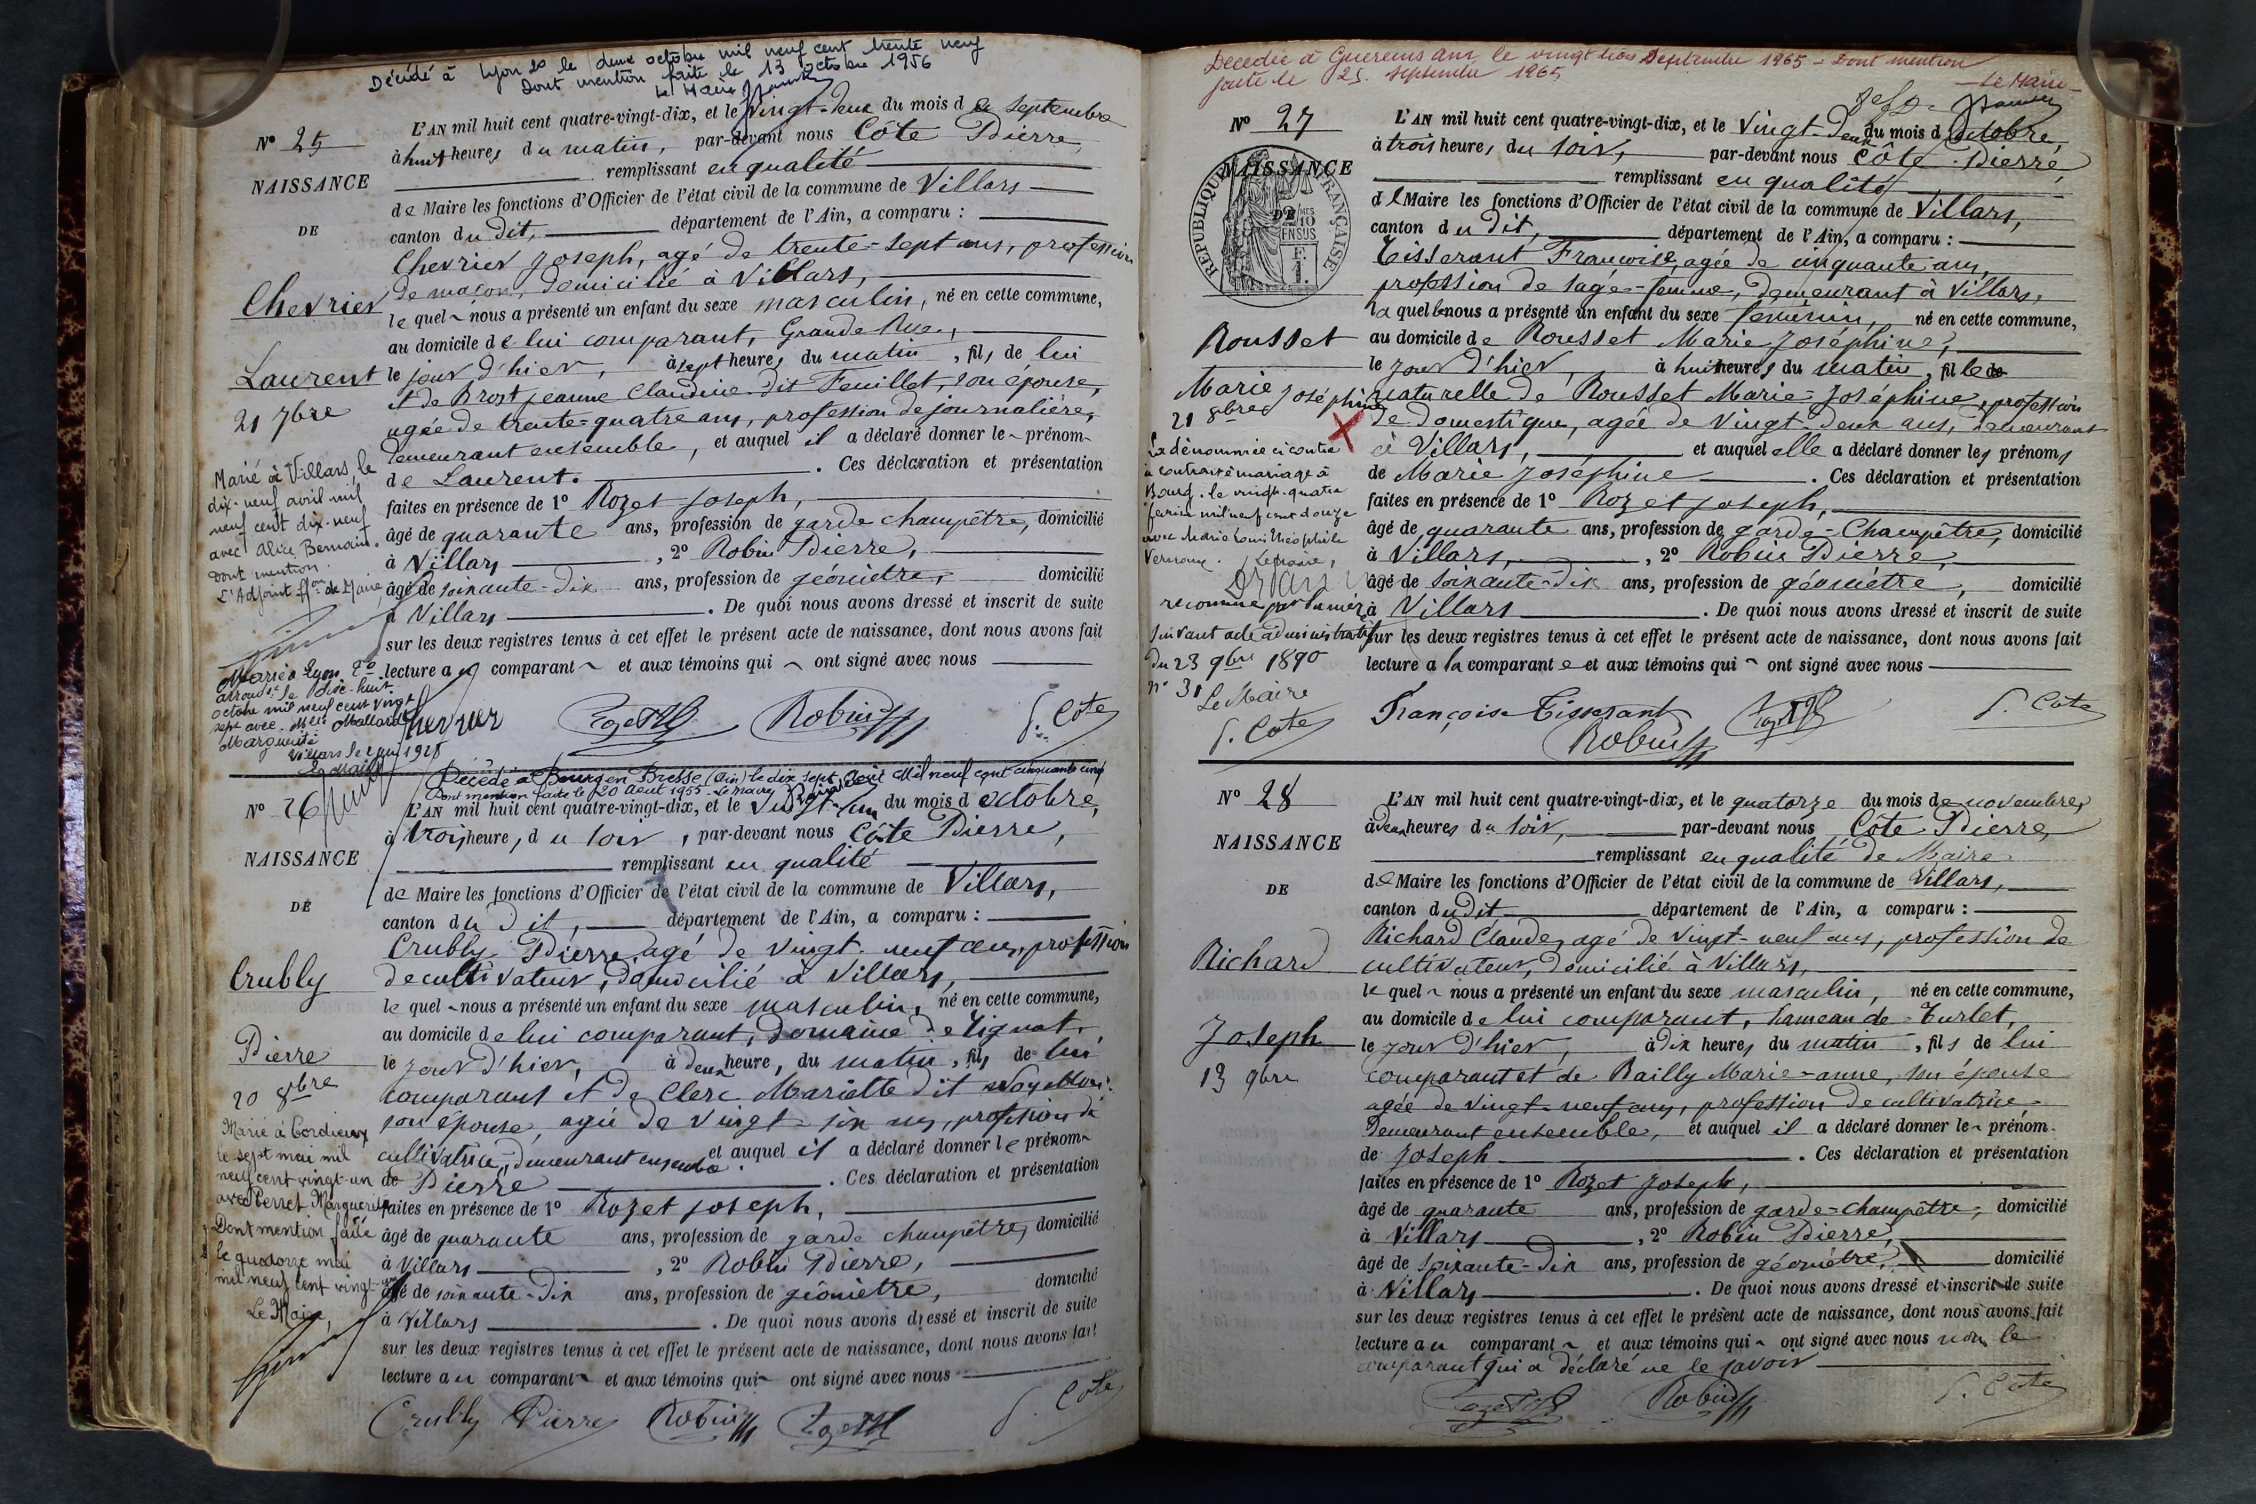 Décédé à Lyon 2e le deux octobre mil neuf cent trente neuf
Dont mention faite le 13 octobre 1956
Le Maire
N° 25
NAISSANCE
DE
Chevrier
Laurent
21 7bre
Marié à Villars, le
dix-neuf avril mil
neuf cent dix-neuf
avec Alice Bernain.
Dont mention.
L'Adjoint ff.on de Maire,
Marié à Lyon 2°
arrondt. le dix-huit
octobre mil neuf cent vingt
sept avec Melle Mallard
Marguerite
Villars le 2 juin 1928
Le Maire
L'AN mil huit cent quatre-vingt-dix, et le vingt-deux du mois de septembre
à huit heures du matin, par-devant nous Côte Pierre,
remplissant en qualité
de Maire les fonctions d'Officier de l'état civil de la commune de Villars
canton du dit, département de l'Ain, a comparu :
Chevrier Joseph, agé de trente-sept ans, profession
de maçon, domicilié à Villars,
le quel nous a présenté un enfant du sexe masculin, né en cette commune,
au domicile de lui comparant, Grande Rue,
le jour d'hier, à sept heures du matin, fils de lui
et de Brost Jeanne Claudine dit Feuillet, son épouse,
agée de trente-quatre ans, profession de journalière,
demeurant ensemble, et auquel il a déclaré donner le prénom
de Laurent. Ces déclaration et présentation
faites en présence de 1° Rozet Joseph,
âgé de quarante ans, profession de garde champêtre, domicilié
à Villars, 2° Robin Pierre,
âgé de soixante-dix ans, profession de géomètre, domicilié
à Villars. De quoi nous avons dressé et inscrit de suite
sur les deux registres tenus à cet effet le présent acte de naissance, dont nous avons fait
lecture au comparant et aux témoins qui ont signé avec nous
Chevrier Rozet Robin P. Côte
Décédé à Bourg en Bresse (Ain) le dix sept Août Mil neuf cent cinquante cinq
Dont mention faite le 20 Août 1955 - Le Maire
N° 26
NAISSANCE
DE
Crubly
Pierre
20 8bre
Marié à Cordieux
le sept mai mil
neuf cent vingt-un
avec Perret Marguerite
Dont mention faite
le quatorze mai
mil neuf cent vingt-un
Le Maire,
L'AN mil huit cent quatre-vingt-dix, et le vingt-un du mois d octobre,
à trois heures, du soir, par-devant nous Côte Pierre,
remplissant en qualité
de Maire les fonctions d'Officier de l'état civil de la commune de Villars,
canton du dit, département de l'Ain, a comparu :
Crubly Pierre, agé de vingt-neuf ans, profession
de cultivateur, domicilié à Villars,
le quel nous a présenté un enfant du sexe masculin, né en cette commune,
au domicile de lui comparant, domaine de Tignat,
le jour d'hier, à deux heures, du matin, fils de lui
comparant et de Clerc Mariette dit
son épouse, agée de vingt-six ans, profession de
cultivatrice, demeurant ensemble. et auquel il a déclaré donner le prénom
de Pierre. Ces déclaration et présentation
faites en présence de 1° Rozet Joseph,
âgé de quarante ans, profession de garde champêtre, domicilié
à Villars, 2° Robin Pierre,
âgé de soixante-dix ans, profession de géomètre, domicilié
à Villars. De quoi nous avons dressé et inscrit de suite
sur les deux registres tenus à cet effet le présent acte de naissance, dont nous avons fait
lecture au comparant et aux témoins qui ont signé avec nous
Crubly Pierre Robin Rozet P. Côte
Décédée à Guereins Ain, le vingt trois Septembre 1965 - Dont mention
faite le 25 septembre 1965
Le Maire
N° 27
NAISSANCE
DE
RÉPUBLIQUE FRANÇAISE
2/10 EN SUS
Rousset
Marie Joséphine
21 8bre
La dénommée ci contre
a contracté mariage à
Bourg, le vingt-quatre
février mil neuf cent douze
avec Marie Louis Théophile
Vernoux. Le Maire,
reconnue par sa mère
suivant acte administratif
du 23 9bre 1890
n° 31
Le Maire
P. Côte
L'AN mil huit cent quatre-vingt-dix, et le vingt-deux du mois d octobre,
à trois heures, du soir, par-devant nous Côte Pierre,
remplissant en qualité
de Maire les fonctions d'Officier de l'état civil de la commune de Villars,
canton du dit, département de l'Ain, a comparu :
Tisserant Françoise, agée de cinquante ans,
profession de sage-femme, demeurant à Villars,
la quelle nous a présenté un enfant du sexe féminin, né en cette commune,
au domicile de Rousset Marie Joséphine,
le jour d'hier, à huit heures du matin, fille de
naturelle de Rousset Marie-Joséphine, profession
de domestique, agée de vingt-deux ans, demeurant
à Villars, et auquel elle a déclaré donner les prénoms
de Marie Joséphine. Ces déclaration et présentation
faites en présence de 1° Rozet Joseph,
âgé de quarante ans, profession de garde-Champêtre, domicilié
à Villars, 2° Robin Pierre,
âgé de soixante-dix ans, profession de géomètre, domicilié
à Villars. De quoi nous avons dressé et inscrit de suite
sur les deux registres tenus à cet effet le présent acte de naissance, dont nous avons fait
lecture a la comparant e et aux témoins qui ont signé avec nous
Françoise Tisserant Rozet P. Côte
Robin
N° 28
NAISSANCE
DE
Richard
Joseph
13 9bre
L'AN mil huit cent quatre-vingt-dix, et le quatorze du mois de novembre,
à deux heures du soir, par-devant nous Côte Pierre,
remplissant en qualité de Maire
de Maire les fonctions d'Officier de l'état civil de la commune de Villars,
canton du dit département de l'Ain, a comparu :
Richard Claude, agé de vingt-neuf ans, profession de
cultivateur, domicilié à Villars,
le quel nous a présenté un enfant du sexe masculin, né en cette commune,
au domicile de lui comparant, hameau de Turlet,
le jour d'hier, à dix heures du matin, fils de lui
comparant et de Bailly Marie-anne, son épouse
agée de vingt-neuf ans, profession de cultivatrice
demeurant ensemble, et auquel il a déclaré donner le prénom
de Joseph. Ces déclaration et présentation
faites en présence de 1° Rozet Joseph,
âgé de quarante ans, profession de garde-champêtre, domicilié
à Villars, 2° Robin Pierre,
âgé de soixante-dix ans, profession de géomètre, domicilié
à Villars. De quoi nous avons dressé et inscrit de suite
sur les deux registres tenus à cet effet le présent acte de naissance, dont nous avons fait
lecture au comparant et aux témoins qui ont signé avec nous non le
comparant qui a déclaré ne le savoir
Rozet Robin P. Côte